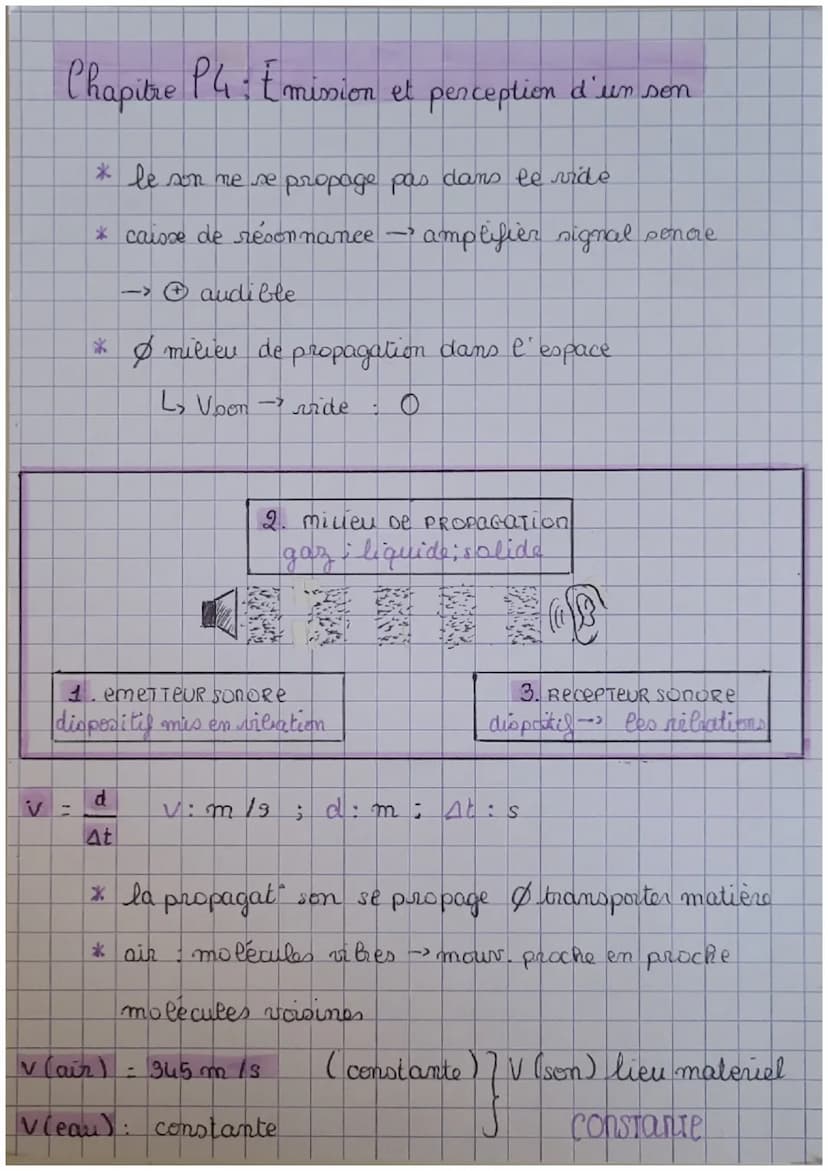 Chapitre P4 : Émission et perception d'un son
* le son ne se propage pas dans le vide
* caisse de résonnance → amplifier signal sonore
→ ⊕ audible
* Ø milieu de propagation dans l'espace
↳ Vson → vide : 0
2. MILIEU DE PROPAGATION
gaz ; liquide ; solide
1. EMETTEUR SONORE
dispositif mis en vibration
3. RECEPTEUR SONORE
dispotif → les vibrations
v = d/Δt   V : m/s ; d : m ; Δt : s
* la propagat° son se propage Ø transporter matière
* air : molécules vibres → mouv. proche en proche
molécules voisines
V(air) = 345 m/s (constante) } V(son) lieu materiel
V(eau) : constante } constante